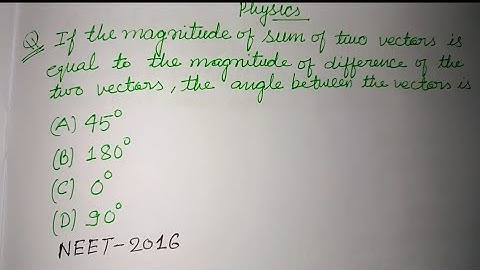 Physics
Q If the magnitude of sum of two vectors is
equal to the magnitude of difference of the
two vectors, the angle between the vectors is
(A) 45°
(B) 180°
(C) 0°
(D) 90°
NEET-2016